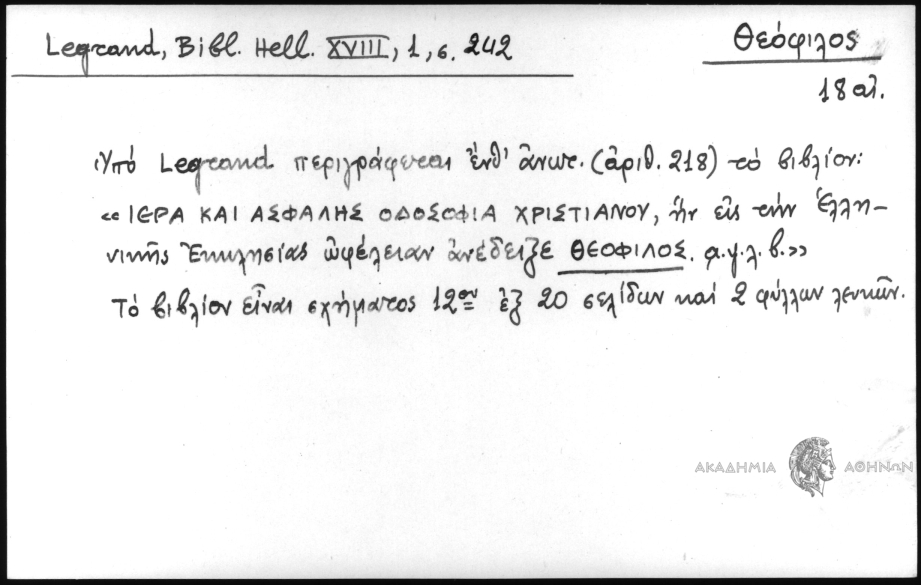 Legrand, Bibl. Hell. XVIII, 1, σ. 242
Θεόφιλος
18 αἰ.
Ὑπό Legrand περιγράφεται ἔνθ' ἄνωτ. (ἀριθ. 218) τό βιβλίον:
«ΙΕΡΑ ΚΑΙ ΑΣΦΑΛΗΣ ΟΔΟΣΟΦΙΑ ΧΡΙΣΤΙΑΝΟΥ, ἥν εἰς τήν Ἑλλη-
νικῆς Ἐκκλησίας ὠφέλειαν ἀνέδειξε ΘΕΟΦΙΛΟΣ. α.γ.λ.β.»
Τό βιβλίον εἶναι σχήματος 12ον ἐξ 20 σελίδων καί 2 φύλλων λευκῶν.
ΑΚΑΔΗΜΙΑ ΑΘΗΝΩΝ